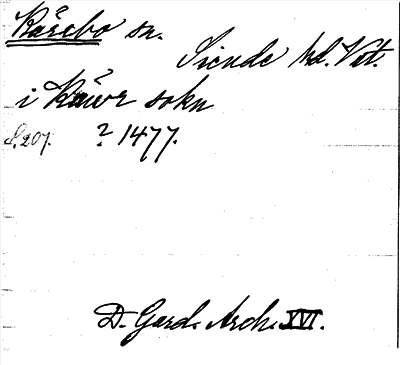 Kärebo sn.
Siende hd. Vst.
i Käwr sokn
S. 207. ? 1477.
D. Gard. Arch. XVI.